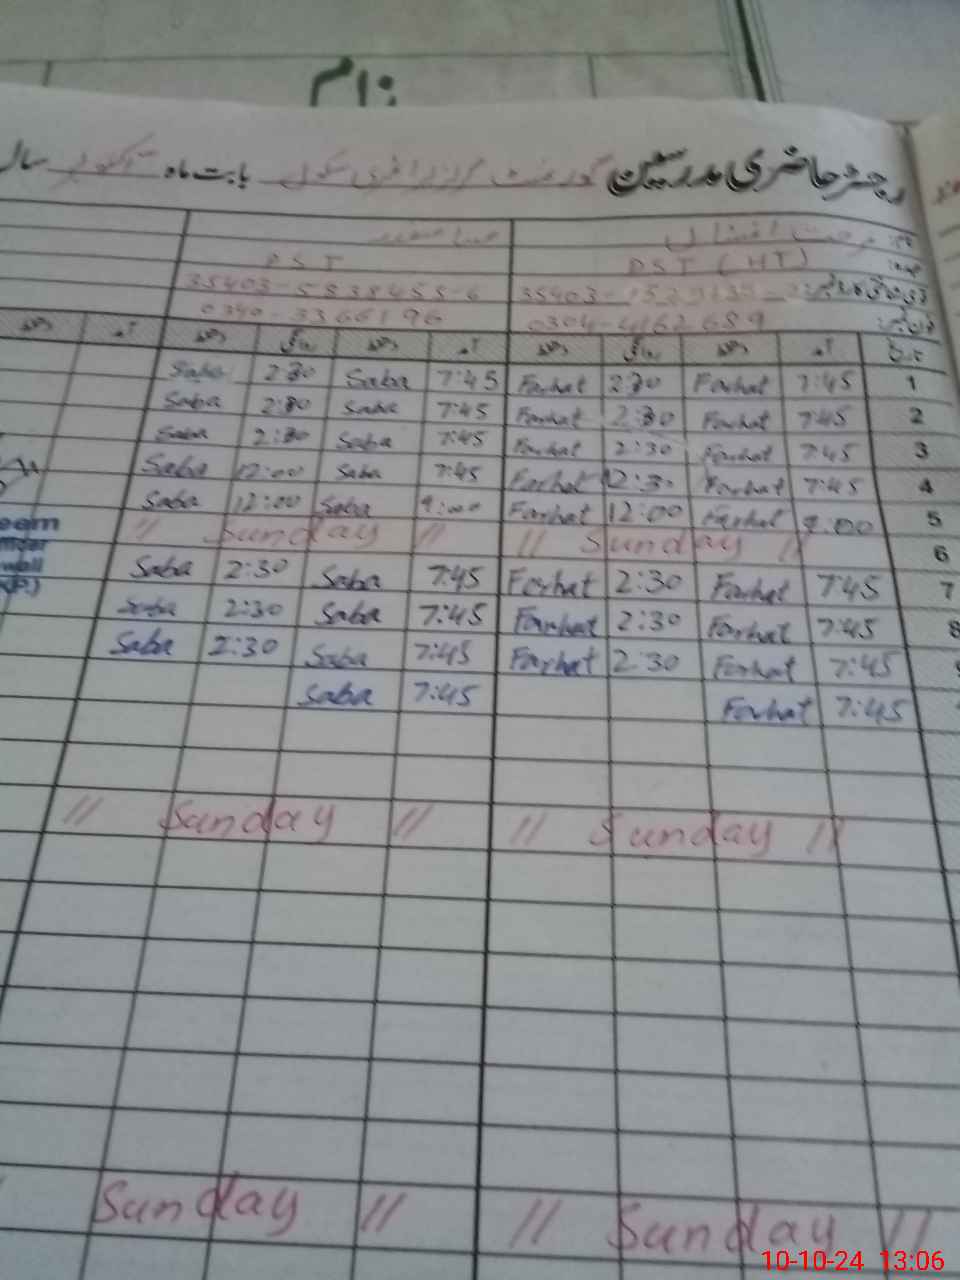 نام
رجسٹر حاضری مدرسین گورنمنٹ گرلز پرائمری سکول بابت ماہ اکتوبر سال
نام
PST PST (HT)
35403-5838455-6 35403-
0340-3366196 0304-4162689
دستخط آمد دستخط روانگی دستخط آمد دستخط روانگی دستخط آمد تاریخ
Saba 2:30 Saba 7:45 Farhat 2:30 Farhat 7:45 1
Saba 2:30 Saba 7:45 Farhat 2:30 Farhat 7:45 2
Saba 2:30 Saba 7:45 Farhat 2:30 Farhat 7:45 3
Saba 12:00 Saba 7:45 Farhat 12:30 Farhat 7:45 4
Saba 12:00 Saba 9:00 Farhat 12:00 Farhat 9:00 5
// Sunday // // Sunday // 6
Saba 2:30 Saba 7:45 Farhat 2:30 Farhat 7:45 7
Saba 2:30 Saba 7:45 Farhat 2:30 Farhat 7:45 8
Saba 2:30 Saba 7:45 Farhat 2:30 Farhat 7:45
Saba 7:45 Farhat 7:45
// Sunday // // Sunday //
Sunday // // Sunday //
10-10-24 13:06